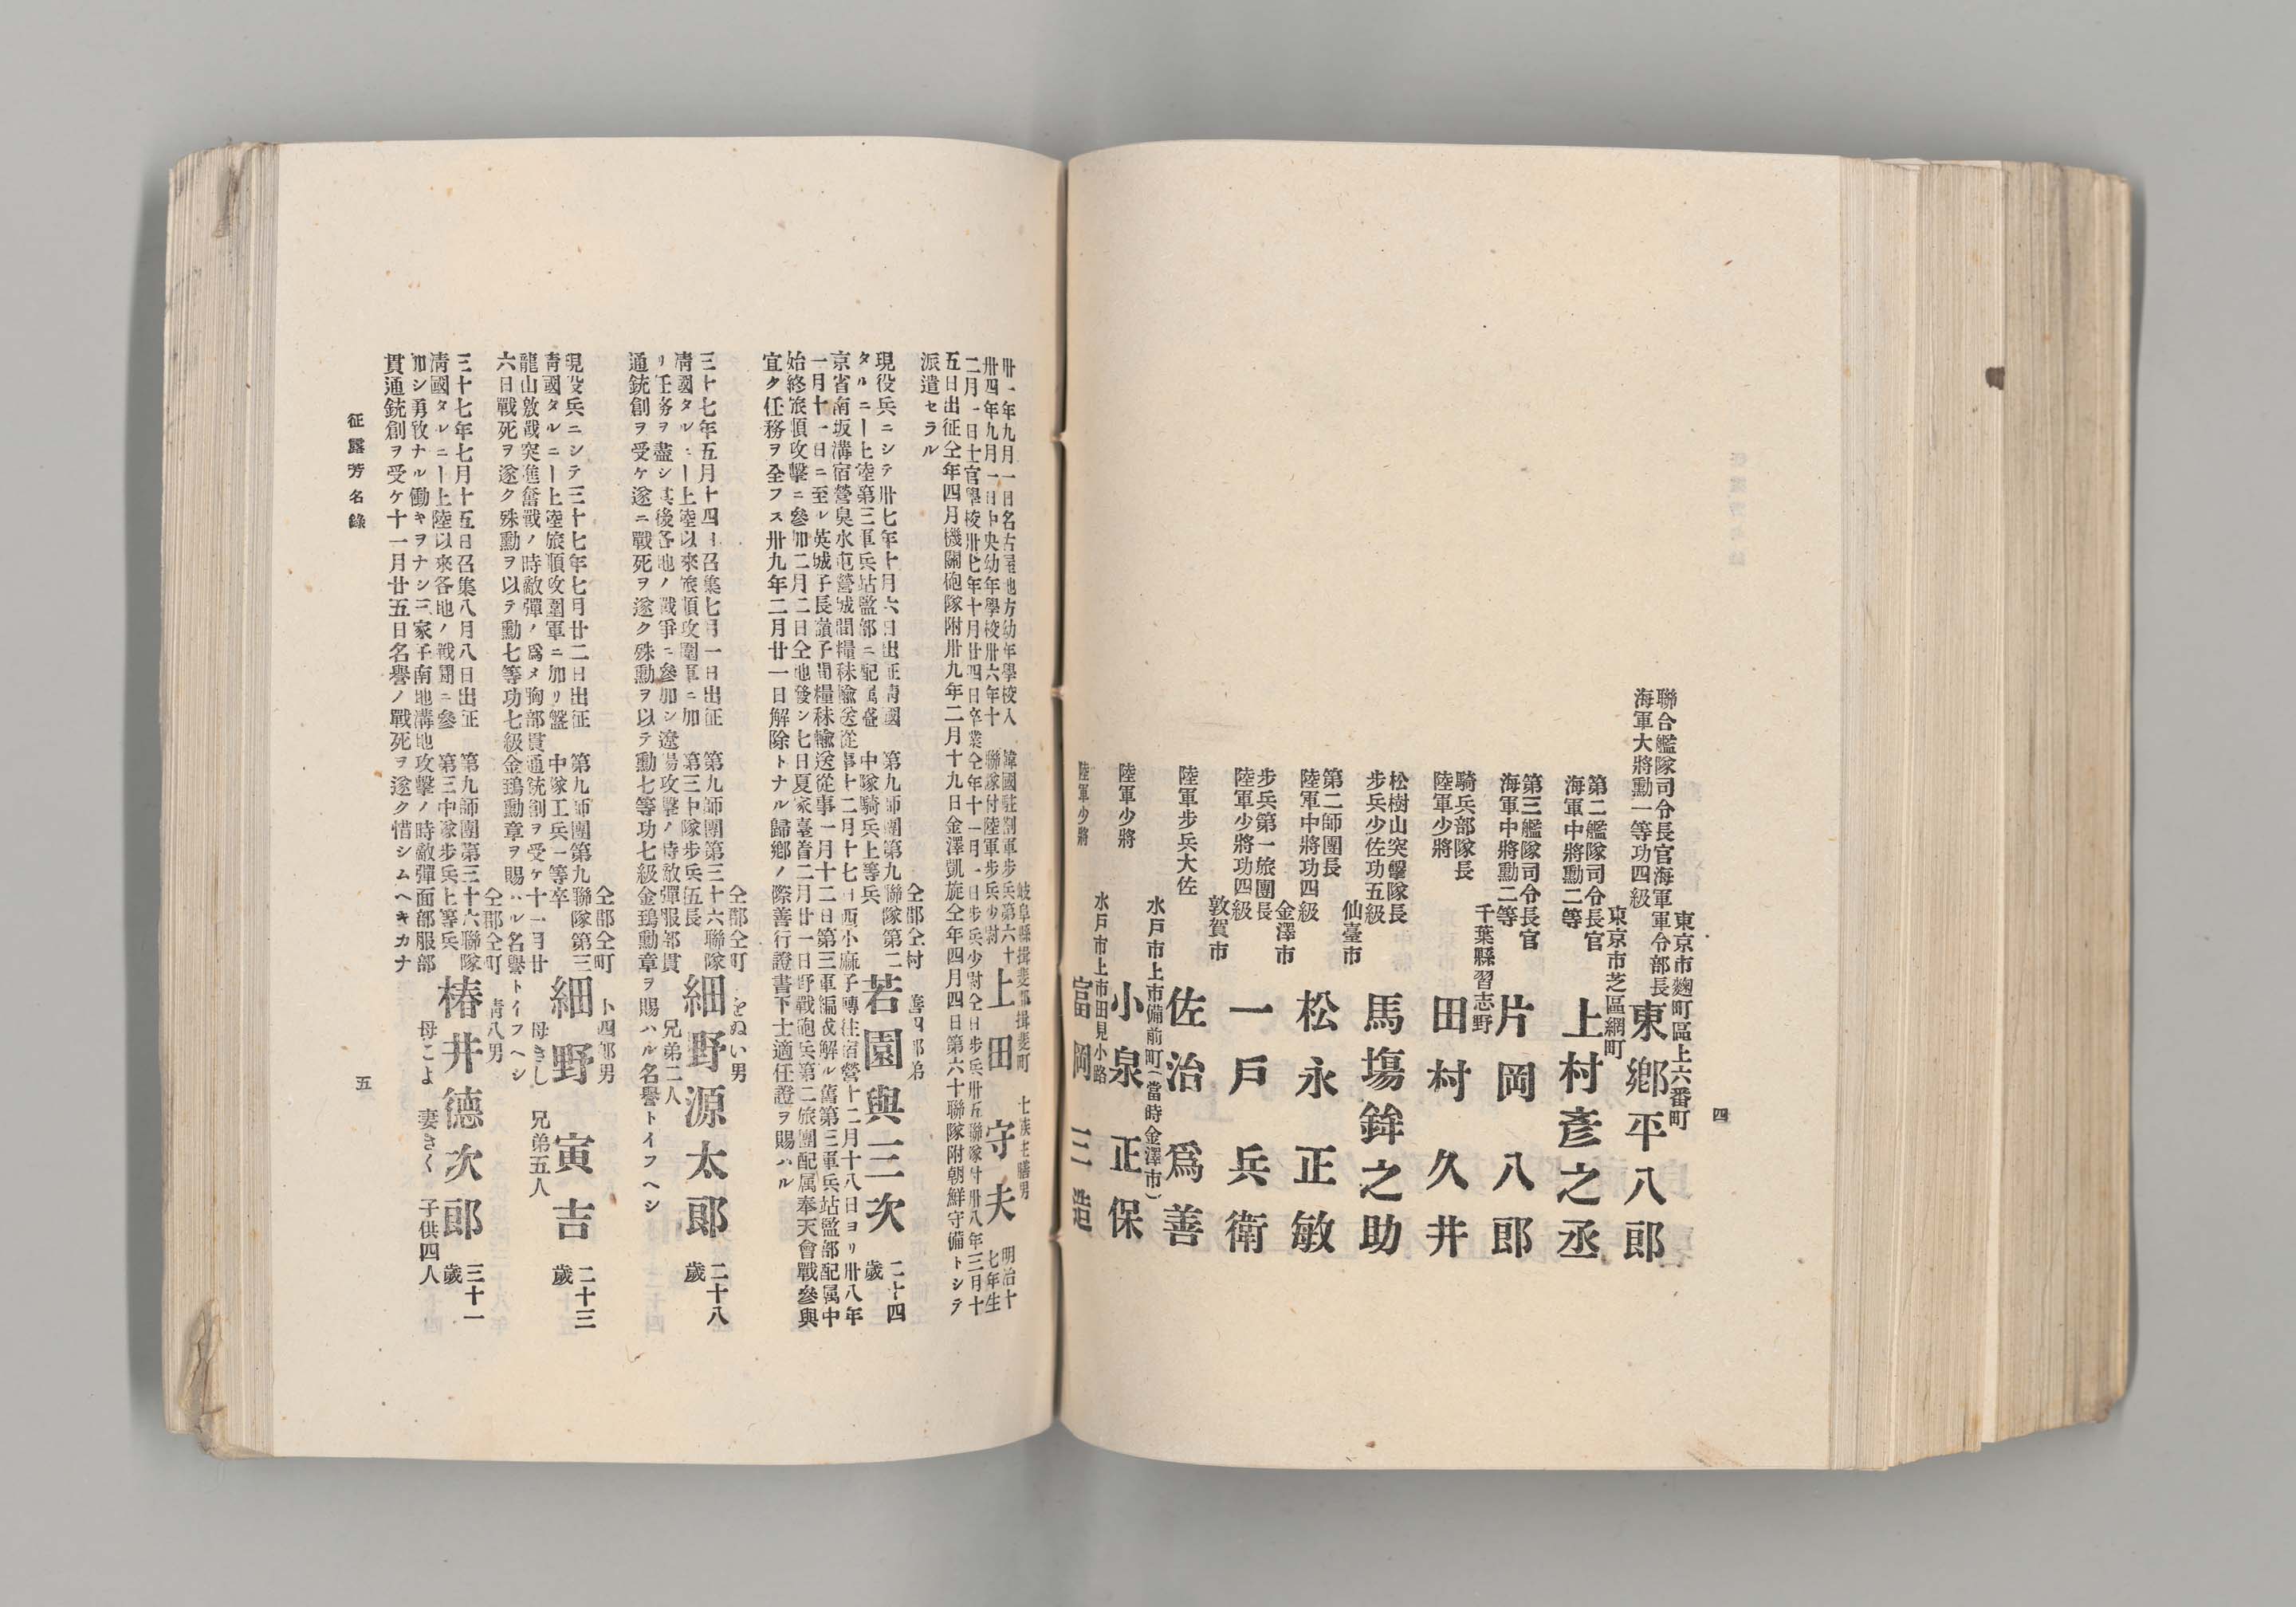 四
東京市麹町區上六番町
聯合艦隊司令長官海軍軍令部長
海軍大將勳一等功四級
東鄕平八郎
東京市芝區網町
第二艦隊司令長官
海軍中將勳二等
上村彥之丞
第三艦隊司令長官
海軍中將勳二等
片岡八郎
千葉縣習志野
騎兵部隊長
陸軍少將
田村久井
松樹山突擊隊長
步兵少佐功五級
馬塲鉾之助
仙臺市
第二師團長
陸軍中將功四級
松永正敏
金澤市
步兵第一旅團長
陸軍少將功四級
一戶兵衛
敦賀市
陸軍步兵大佐
佐治爲善
水戶市上市備前町(當時金澤市)
陸軍少將
小泉正保
水戶市上市田見小路
陸軍少將
富岡三造
岐阜縣揖斐郡揖斐町
韓國駐劄軍步兵第六十
聯隊付陸軍步兵少尉
上田守夫
明治十
七年生
卅一年九月一日名古屋地方幼年學校入
卅四年九月一日中央幼年學校卅六年十
二月一日士官學校卅七年十月廿四日卒業仝年十一月一日步兵少尉仝日步兵卅五聯隊付卅八年三月十
五日出征仝年四月機關砲隊附卅九年二月十九日金澤凱旋仝年四月四日第六十聯隊附朝鮮守備トシテ
派遣セラル
仝郡仝村
第九師團第九聯隊第二
中隊騎兵上等兵
若園與三次
二十四
歲
現役兵ニシテ卅七年十月六日出征淸國
タルニー上陸第三軍兵站監部ニ配屬盛
京省南坂溝宿營臭水屯營城間糧秣輸送從事十二月十七日西小麻子轉往宿營十二月十八日ヨリ卅八年
一月十一日ニ至ル英城子長嶺子間糧秣輸送從事一月十二日第三軍編成解ル舊第三軍兵站監部配属中
始終旅順攻擊ニ參加二月二日仝地發シ七日夏家臺着二月廿一日野戰砲兵第二旅團配属奉天會戰參與
宜ク任務ヲ全フス卅九年二月廿一日解除トナル歸鄕ノ際善行證書下士適任證ヲ賜ハル
仝郡仝町
をぬい男
第九師團第三十六聯隊
第三中隊步兵伍長
細野源太郎
二十八
歲
兄弟二人
三十七年五月十四日召集七月一日出征
淸國タルニー上陸以來旅順攻圍軍ニ加
リ任務ヲ盡シ其後各地ノ戰爭ニ參加シ遼陽攻擊ノ時敵彈服部貫
通銃創ヲ受ケ遂ニ戰死ヲ遂ク殊勳ヲ以テ勳七等功七級金鵄勳章ヲ賜ハル名譽トイフヘシ
仝郡仝町
第九師團第九聯隊第三
中隊工兵一等卒
細野寅吉
二十三
歲
母きし
兄弟五人
現役兵ニシテ三十七年七月廿二日出征
靑國タルニー上陸旅順攻圍軍ニ加リ盤
龍山敫戰突進奮戰ノ時敵彈ノ爲メ胸部貫通銃創ヲ受ケ十一月廿
六日戰死ヲ遂ク殊勳ヲ以テ勳七等功七級金鵄勳章ヲ賜ハル名譽トイフヘシ
仝郡仝町
淸八男
第九師團第三十六聯隊
第三中隊步兵上等兵
椿井德次郎
三十一
歲
母こよ
妻きく
子供四人
三十七年七月十五日召集八月八日出征
淸國タルニー上陸以來各地ノ戰鬪ニ參
加シ勇敢ナル働キヲナシ三家子南地溝地攻擊ノ時敵彈面部服部
貫通銃創ヲ受ケ十一月廿五日名譽ノ戰死ヲ遂ク惜シムヘキカナ
征露芳名錄
五